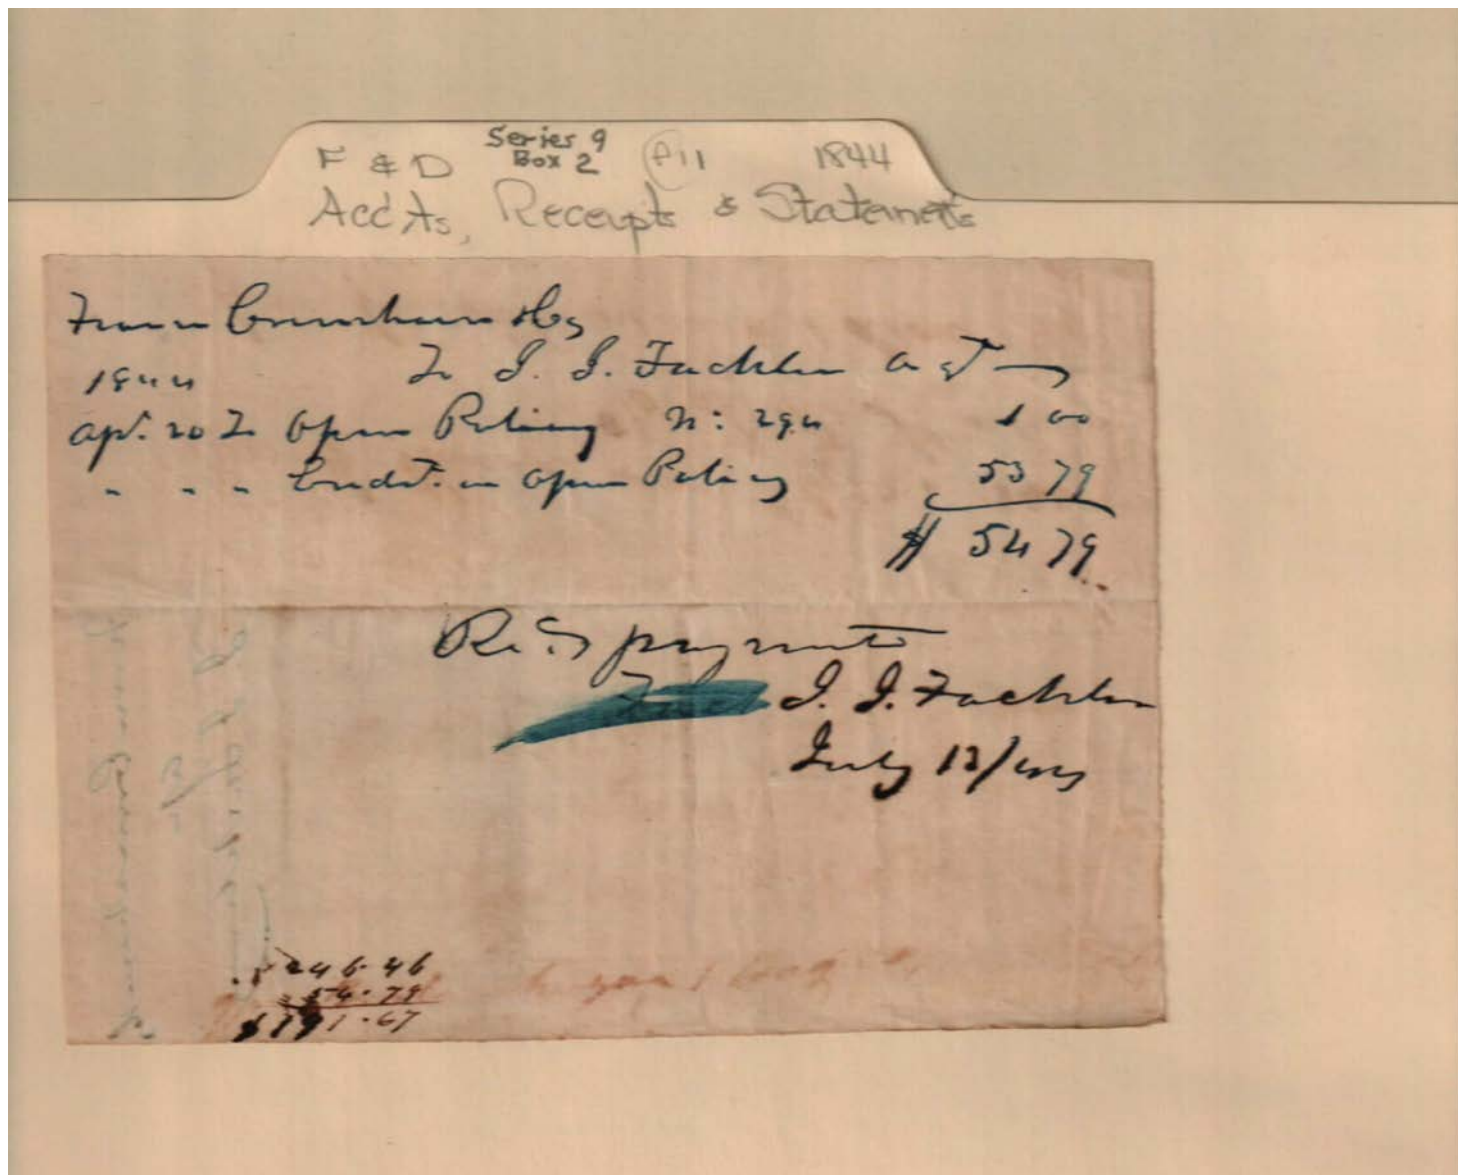 Series 9
F & D Box 2 A11 1844
Acc'ts, Receipts & Statements
1844 To J. J. Fackler agt
Apl. 20 To Open Policy No: 294 1 00
" " " Endst. on Open Policy 53 79
$ 54 79
Rec'd payment
J. J. Fackler
July 13/44
246.46
54.79
$191.67